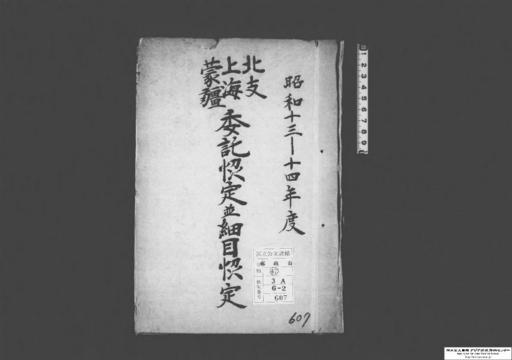 昭和十三―十四年度
北支
上海
蒙疆
委託協定並細目協定
国立公文書館
3 A
6-2
607
607
1 2 3 4 5 6 7 8 9